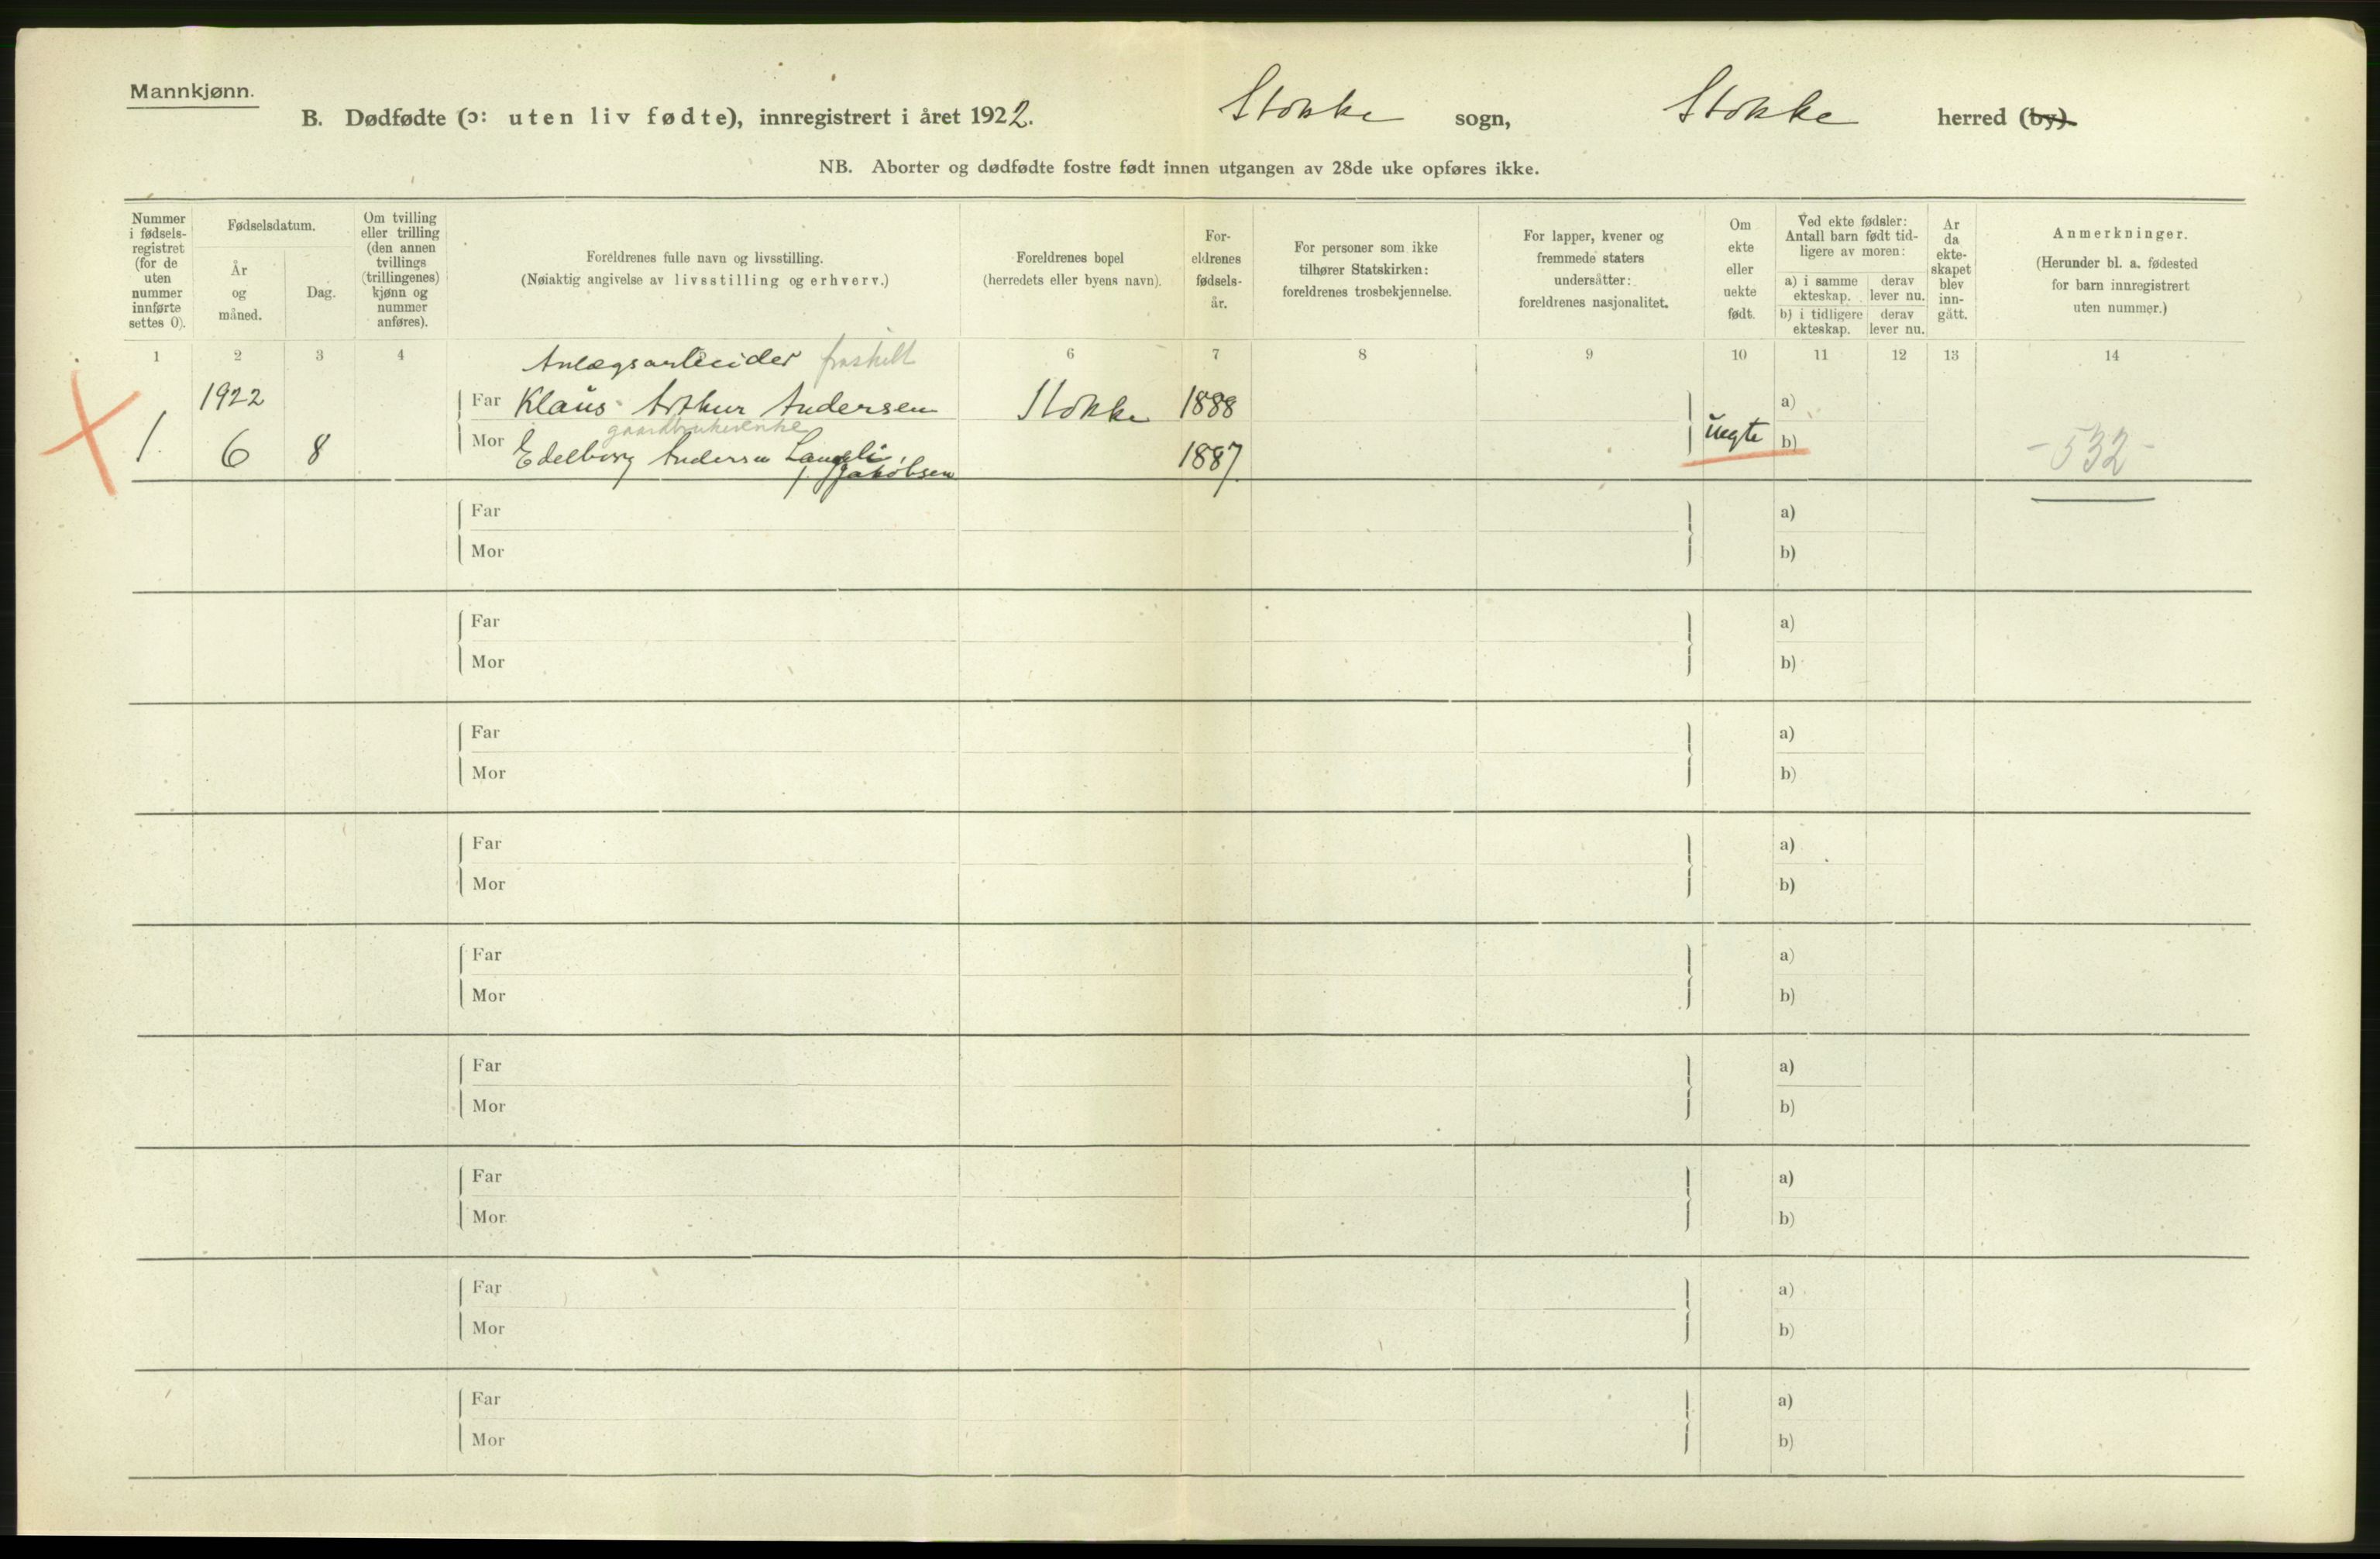 Mannkjønn.
B. Dødfødte (ɔ: uten liv fødte), innregistrert i året 1922. Stokke sogn, Stokke herred (by)
NB. Aborter og dødfødte fostre født innen utgangen av 28de uke opføres ikke.
Nummer i fødsels-registret (for de uten nummer innførte settes 0).
Fødselsdatum.
År og måned.
Dag.
Om tvilling eller trilling (den annen tvillings (trillingenes) kjønn og nummer anføres).
Foreldrenes fulle navn og livsstilling.
(Nøiaktig angivelse av livsstilling og erhverv.)
Foreldrenes bopel
(herredets eller byens navn).
For-eldrenes fødsels-år.
For personer som ikke tilhører Statskirken: foreldrenes trosbekjennelse.
For lapper, kvener og fremmede staters undersåtter: foreldrenes nasjonalitet.
Om ekte eller uekte født.
Ved ekte fødsler: Antall barn født tid-ligere av moren:
a) i samme ekteskap. derav lever nu.
b) i tidligere ekteskap. derav lever nu.
År da ekte-skapet blev inn-gått.
Anmerkninger.
(Herunder bl. a. fødested for barn innregistrert uten nummer.)
1 2 3 4 6 7 8 9 10 11 12 13 14
Anlægsarbeider fraskilt
1922 Far Klaus Arthur Andersen Stokke 1888 a)
gaardbrukerenke
1. 6 8 Mor Edelborg Andersen Langeli, 1887 uegte b) -532-
f. Jakobsen
Far a)
Mor b)
Far a)
Mor b)
Far a)
Mor b)
Far a)
Mor b)
Far a)
Mor b)
Far a)
Mor b)
Far a)
Mor b)
Far a)
Mor b)
Far a)
Mor b)